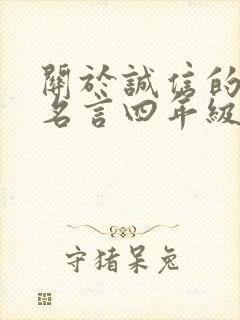 關於誠信的
名言四年級
守猪呆兔